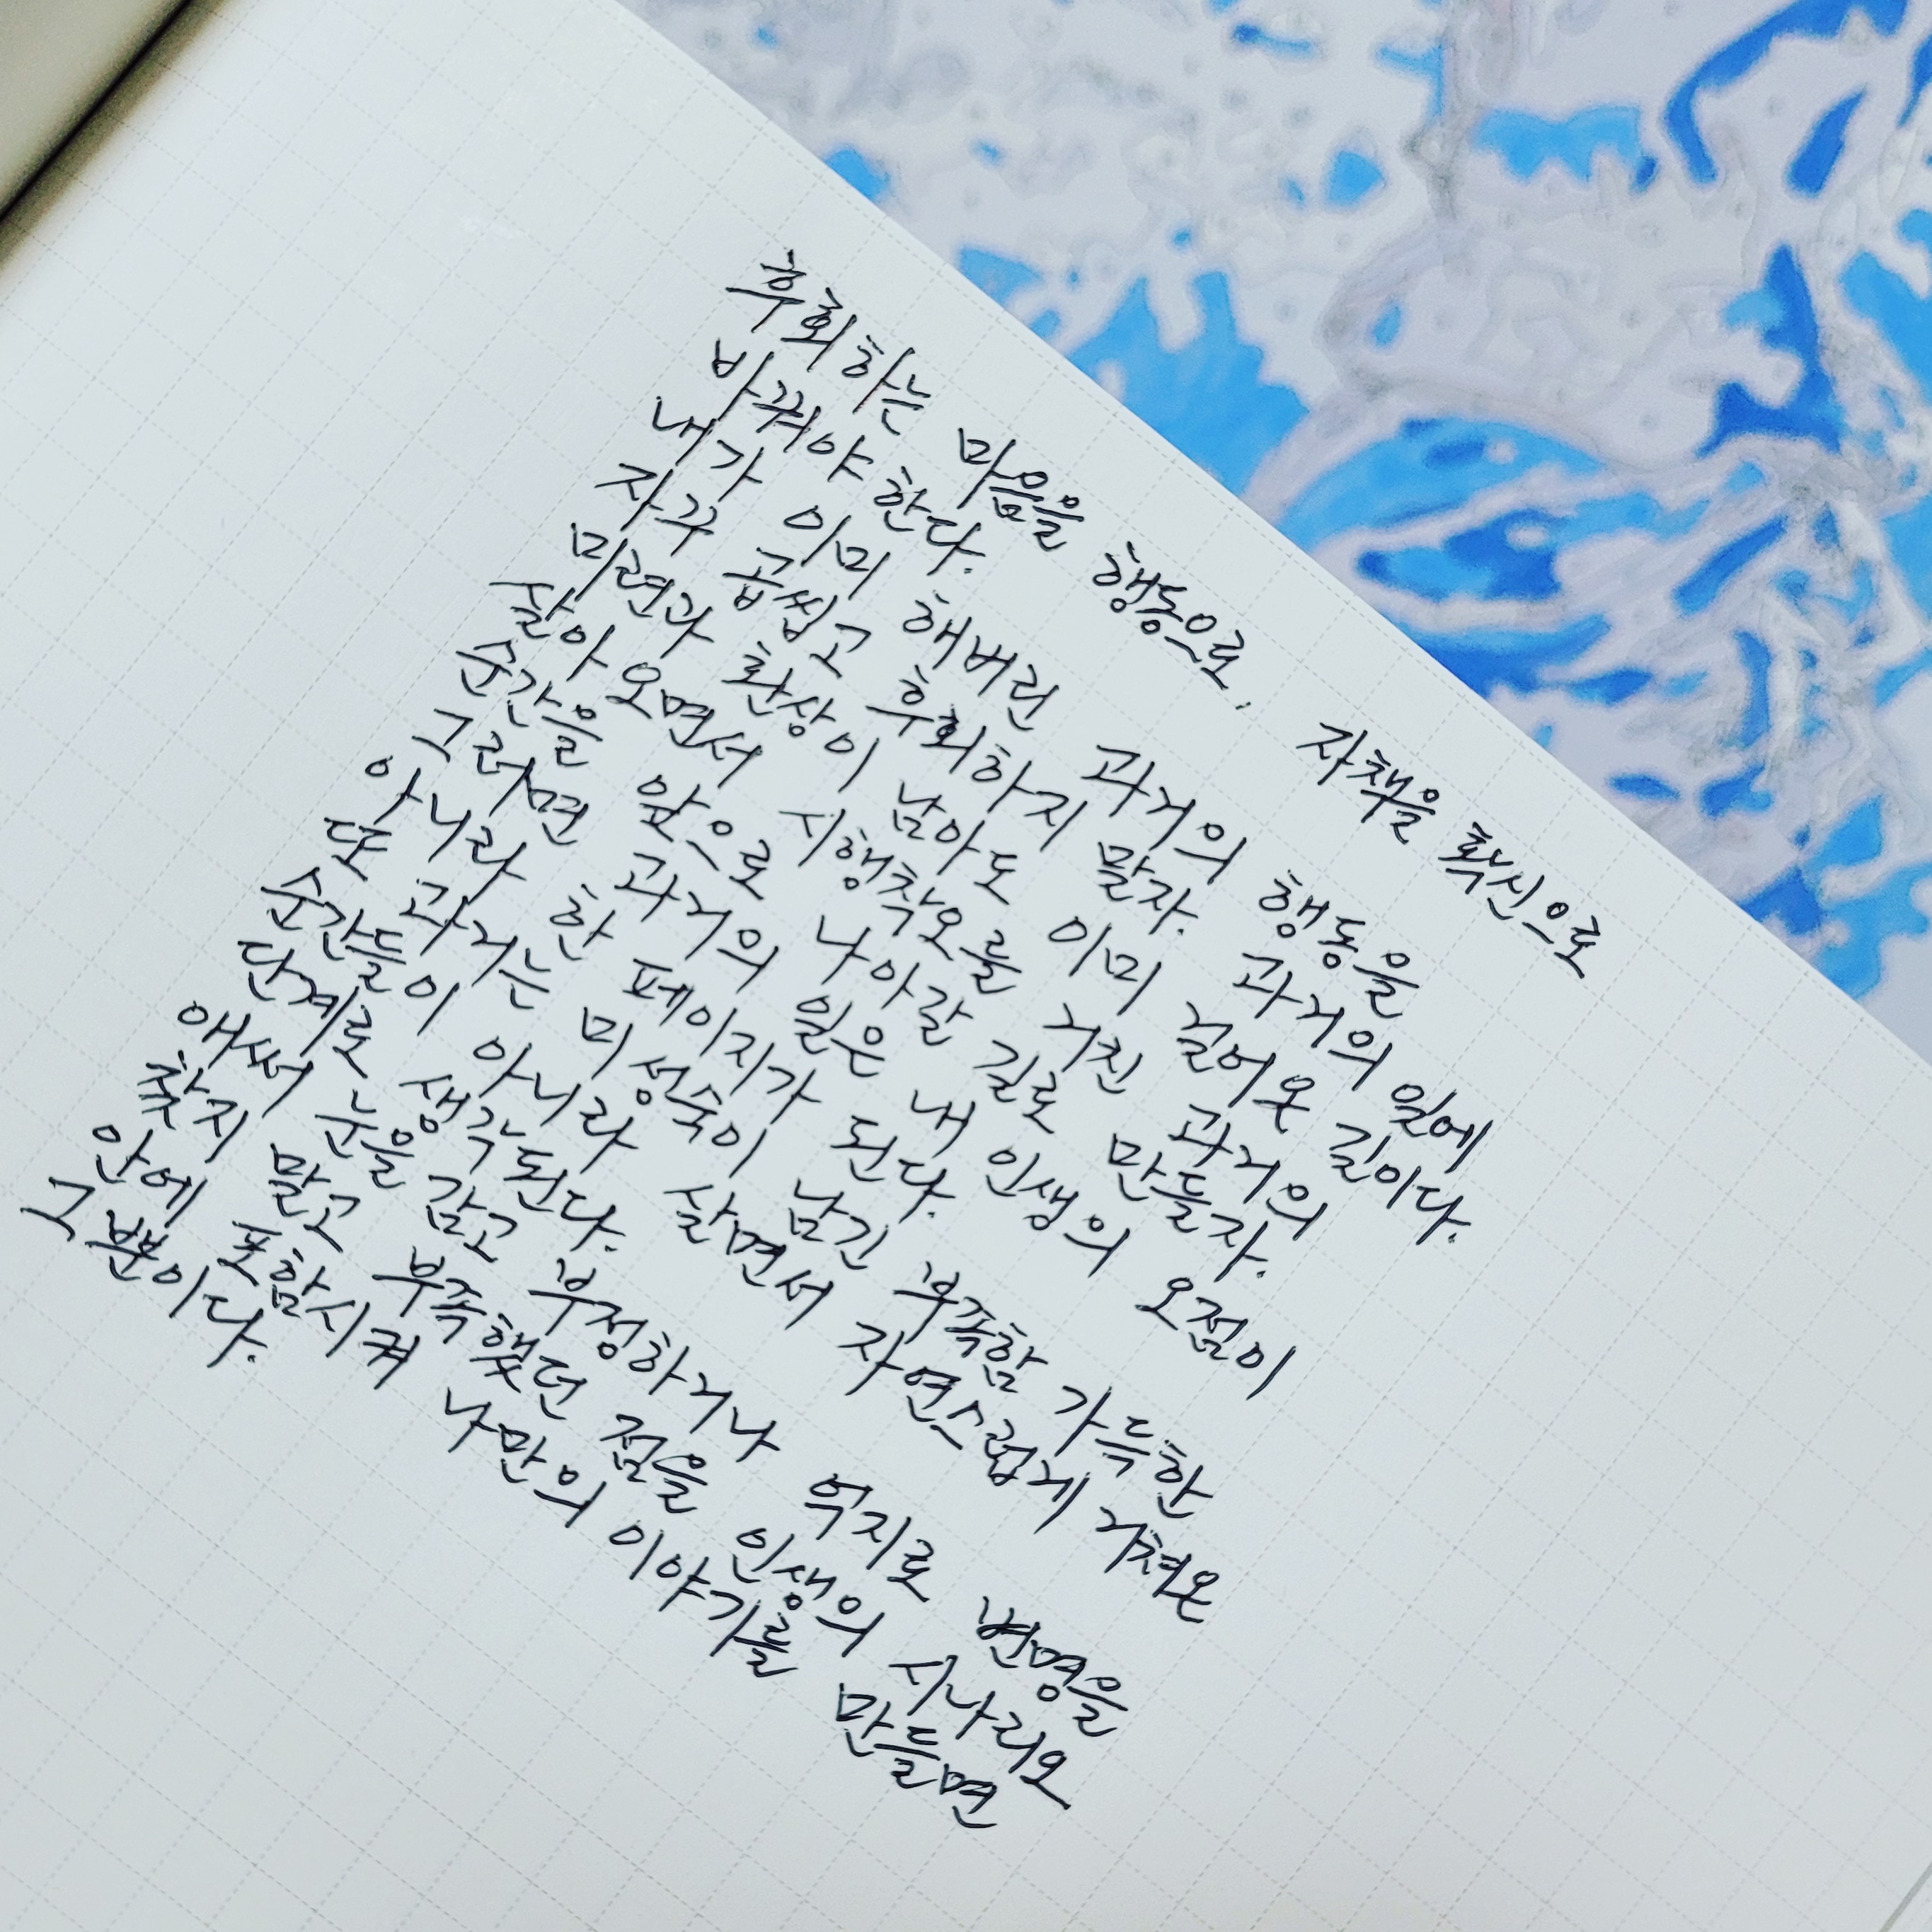 후회하는 마음을 행동으로, 자책을 확신으로
바꿔야 한다.
내가 이미 해버린 과거의 행동을
자꾸 곱씹고 후회하지 말자. 과거의 일에
미련과 환상이 남아도 이미 걸어온 길이다.
살아오면서 시행착오를 거친 과거의
순간을 앞으로 나아갈 길로 만들자.
그러면 과거의 일은 내 인생의 오점이
아니라 한 페이지가 된다.
또 과거는 미성숙이 남긴 부족함 가득한
순간들이 아니라 살면서 자연스럽게 거쳐온
단계로 생각된다.
애써 눈을 감고 부정하거나 억지로 변명을
찾지 말고 부족했던 점을 인생의 시나리오
안에 포함시켜 나만의 이야기를 만들면
그뿐이다.